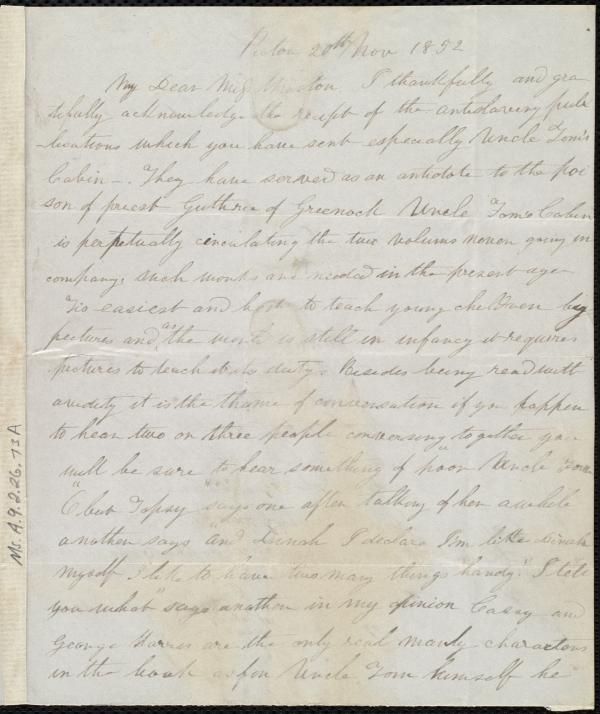 Picton 20th Nov 1852
My Dear Miss Weston I thankfully and gra
tifully acknowledge the receipt of the antislavery pub
lications which you have sent especially Uncle Tom's
Cabin -. They have served as an antidote to the poi
son of priest Guthrie of Greenock Uncle Toms Cabin
is perpetually circulating the two volums never going in
company, such works are needed in the present age
Tis easiest and best to teach young children by
pectures and as the world is still in infancy it requires
pictures to teach it its duty. Besides being read with
avidity it is the theme of conversation if you happen
to hear two or three people conversing together you
will be sure to hear something of "poor Uncle Tom"
"O but Topsy" says one after talking of her a while
another says "and Dinah I declare I'm like Dinah
myself I like to have two many things handy". I tell
you what" says another in my opinion Casey and
George Harris are the only real manly characters
in the book as for Uncle Tom himself he
Ms. A.9.2.26.73A